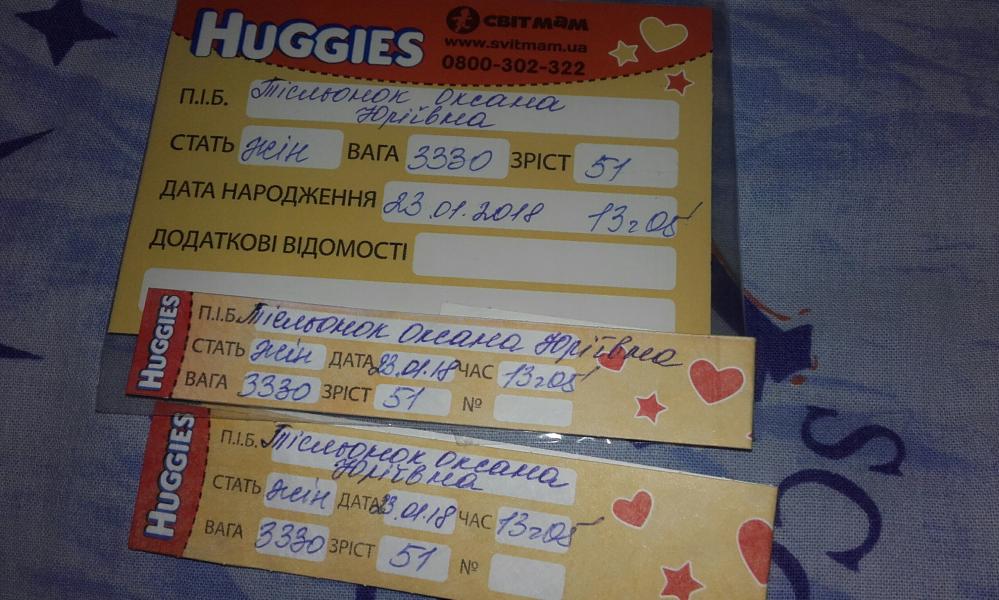 HUGGIES
СВІТ МАМ
www.svitmam.ua
0800-302-322
П.І.Б. Тісльонок Оксана
Юріївна
СТАТЬ жін ВАГА 3330 ЗРІСТ 51
ДАТА НАРОДЖЕННЯ 23.01.2018 13г05'
ДОДАТКОВІ ВІДОМОСТІ
HUGGIES
П.І.Б. Тісльонок Оксана Юріївна
СТАТЬ жін ДАТА 23.01.18 ЧАС 13г05'
ВАГА 3330 ЗРІСТ 51 №
HUGGIES
П.І.Б. Тісльонок Оксана
Юріївна
СТАТЬ жін ДАТА 23.01.18 ЧАС 13г05'
ВАГА 3330 ЗРІСТ 51 №